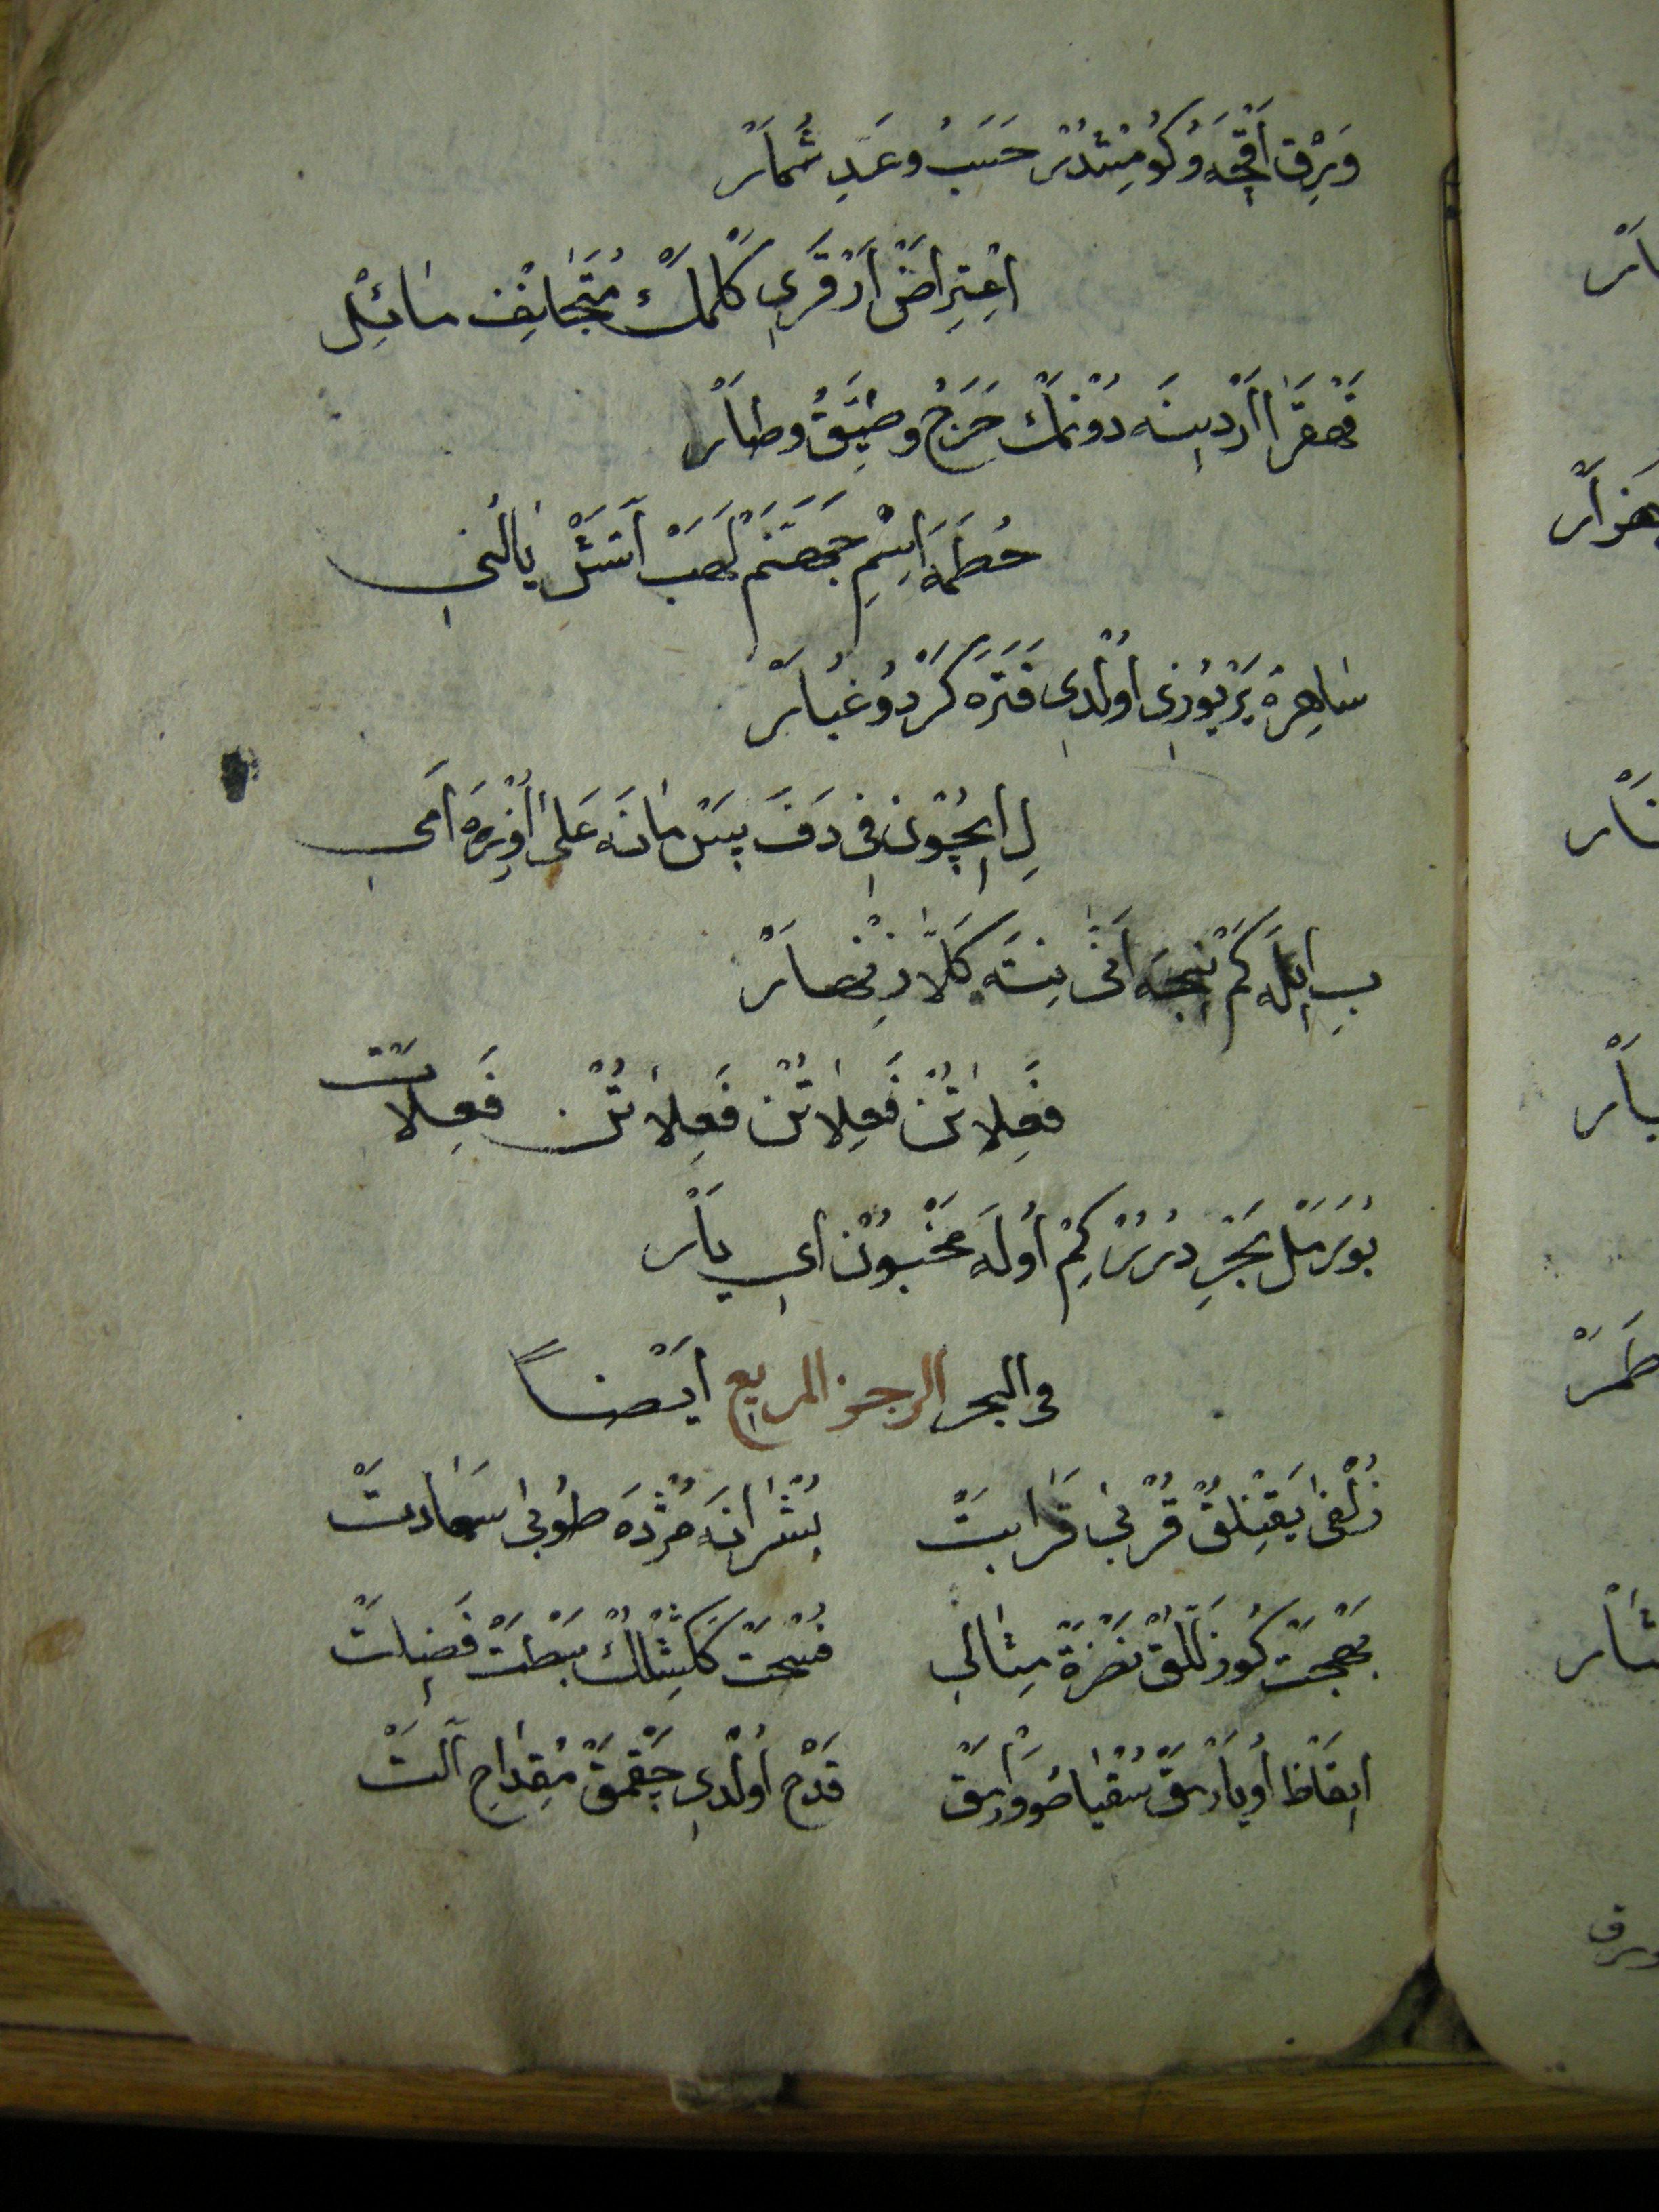 وَرِقْ اَقْچَه وَ كُومِشْدُرْ حَسَبُ وعَدِ شُمَارْ
اِعْتِرَاضْ اَرْقَرِي كَلْمَكْ مُتَجَانِفْ مَائِلْ
قَهْقَرَا اَرْدِينَه دُونْمَكْ حَرَجُ وضَيِّقُ وطَارْ
حُطَمَه اِسْمِ جَهَنَّمْ لَهَبْ آتَشْ يَالْڭِي
سَاهِرَه يَرْ يُوزِي اُولْدِي قَتَرَه كَرْدُ وغُبَارْ
لِ اِيچُونْ فِي دَفَ پَسْ مَانَه عَلَى اُوزِرَه اَمِي
بِ اِيلَه كَمْ نِيجَه اَنَّى نِتَه كَلَّا زِنْهَارْ
فَعِلَاتُنْ فَعِلَاتُنْ فَعِلَاتُنْ فَعِلَاتْ
بُو رَمَلْ بَحْرِ دُرُرْ كِمْ اُولَه مَخْبُونْ اَيْ يَارْ
فى البحر الرجز المربع اَيْضًا
زُلْفَى يَقِنْلِقْ قُرْبَى قَرَابَتْ بُشْرَانَه مُژْدَه طُوبَى سَعَادَتْ
بَهْجَتْ كُوزَلْلِقْ نَضْرَةْ مِثَالِي فُسْحَتْ كَڭِشْلِكْ بَسْطَتْ فَضِيلَتْ
اِيقَاظْ اُويَارْمَقْ سُقْيَا صُووَارْمَقْ قَدْحْ اُولْدِي چَقْمَقْ مِقْدَاحِ آلَتْ